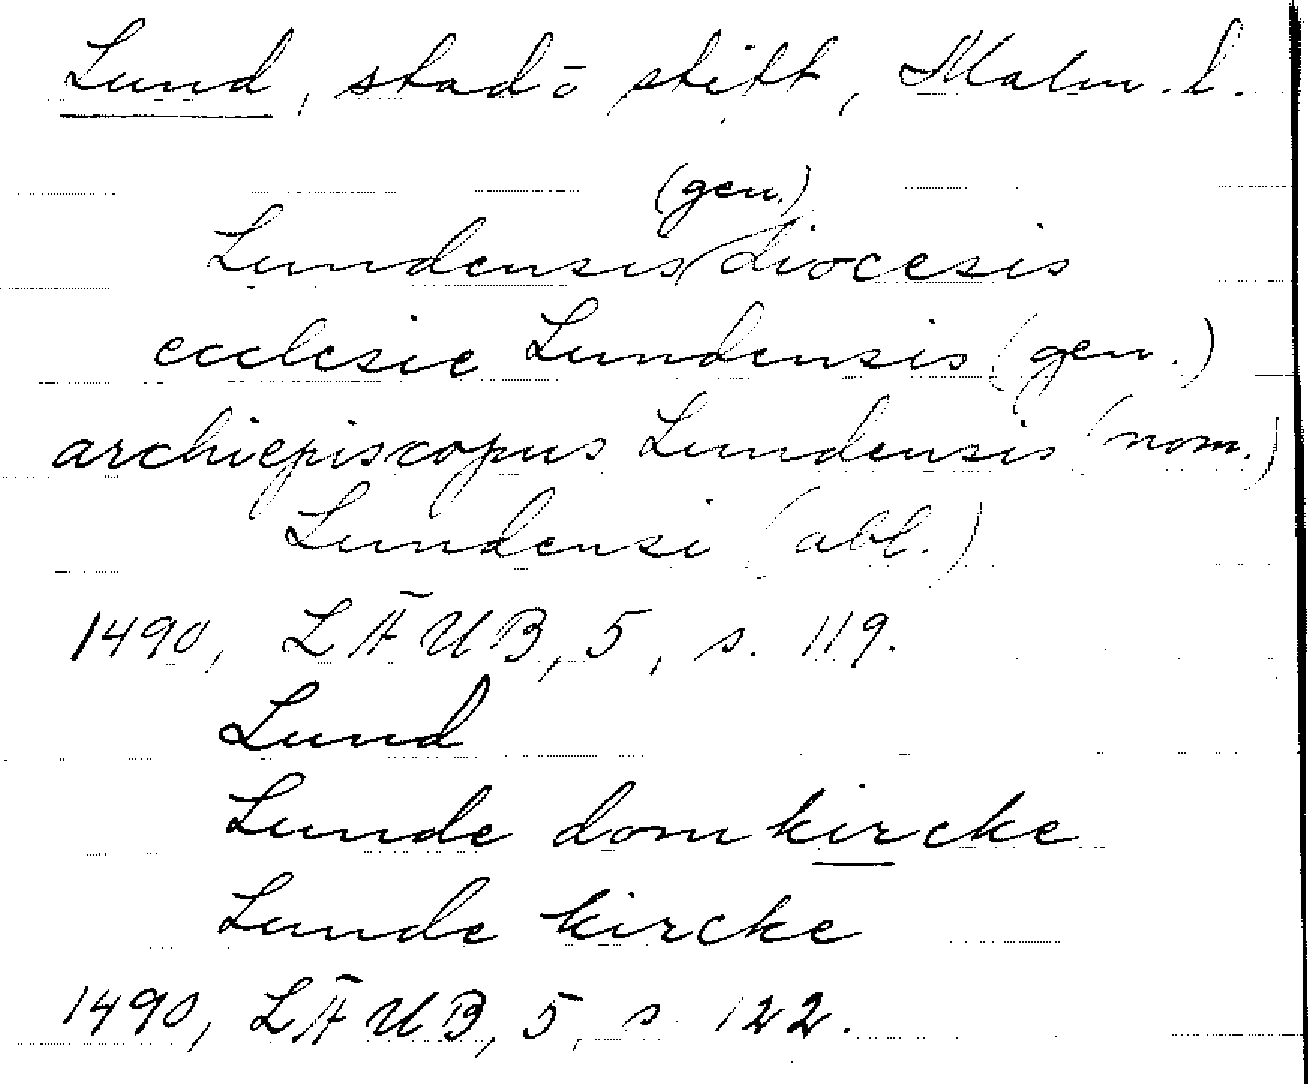 Lund, stad o stift, Malm. l.
(gen.)
Lundensis diocesis
ecclesie Lundensis (gen.)
archiepiscopus Lundensis (nom.)
Lundensi (abl.)
1490, LÄUB, 5, s. 119.
Lund
Lunde domkircke
Lunde kircke
1490, LÄUB, 5, s. 122.